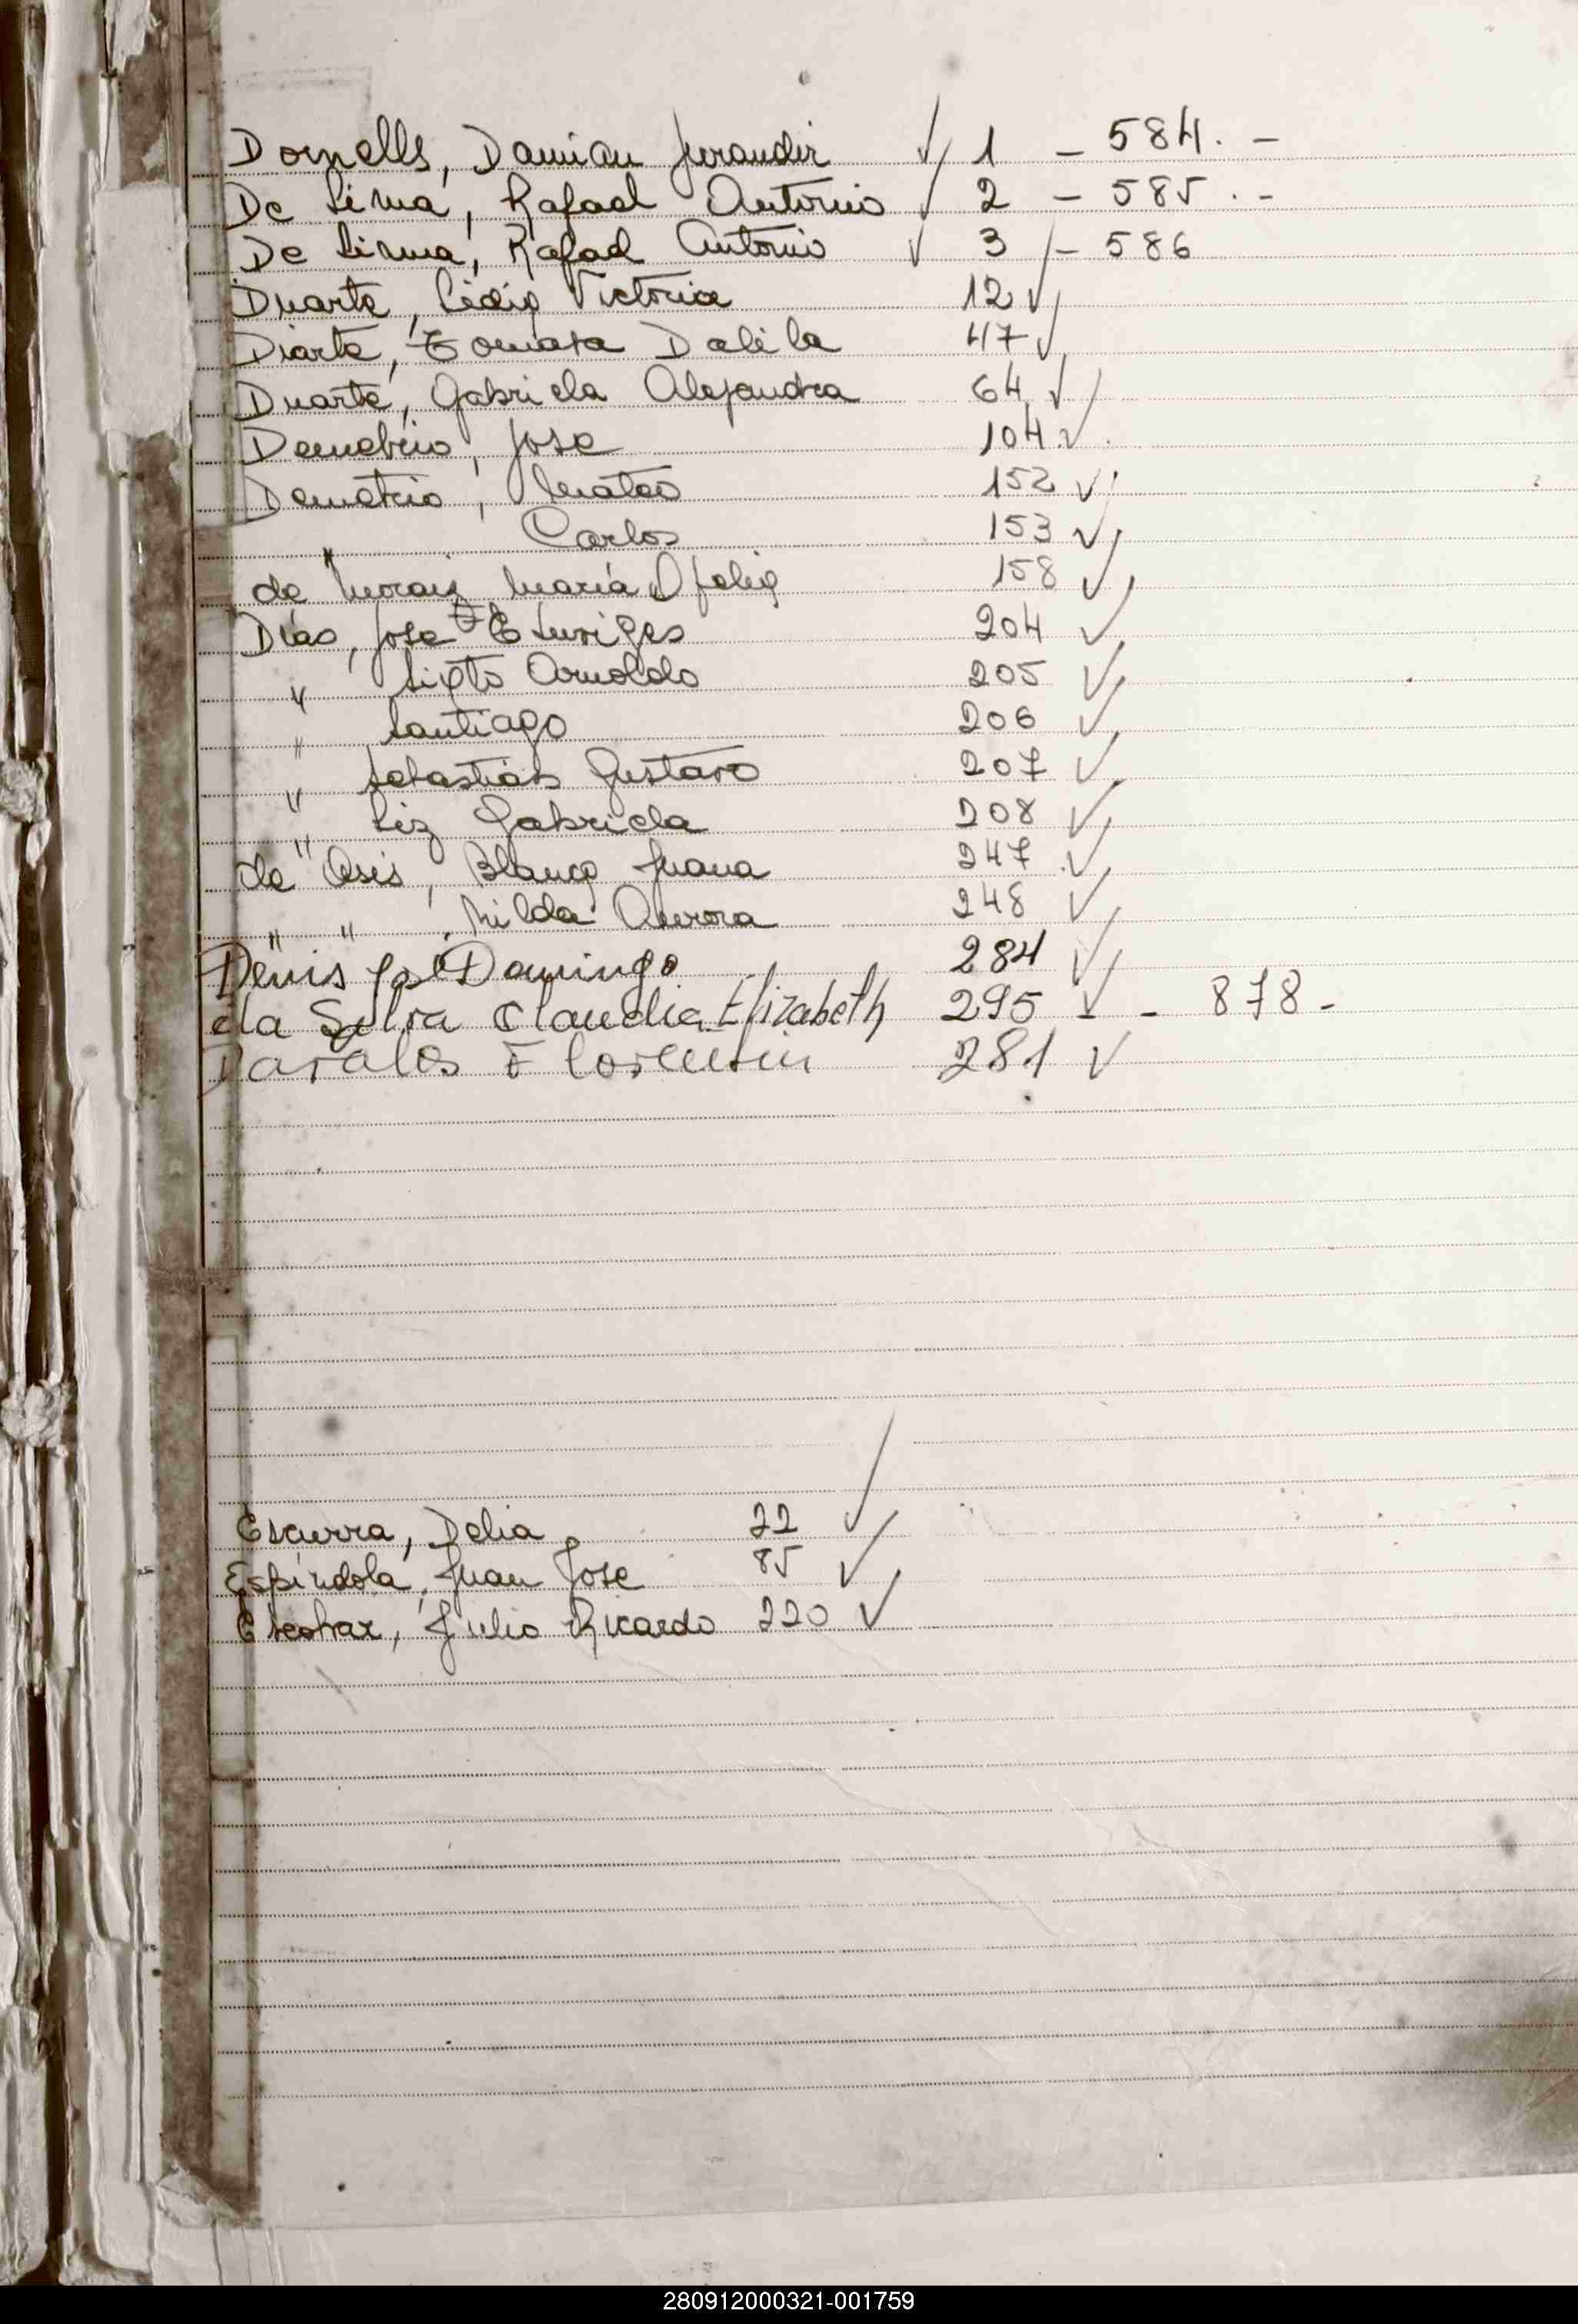 Dornells, Damian Jurandir ✓ 1 - 584. -
De Lima, Rafael Antonio ✓ 2 - 585. -
De Lima, Rafael Antonio ✓ 3 - 586
Duarte, Victoria 12 ✓
Diarte, Dalila 47 ✓
Duarte, Gabriela Alejandra 64 ✓
Demetrio, Jose 104 ✓
Demetrio, Mateo 152 ✓
" Carlos 153 ✓
de Moraiz Maria Ofelia 158 ✓
Dias, Jose Eduriges 204 ✓
" Sixto Arnoldo 205 ✓
" Santiago 206 ✓
" Sebastian Gustavo 207 ✓
" Liz Gabriela 208 ✓
de Asis, Blanca Juana 247 ✓
" " , Nilda Aurora 248 ✓
Denis José Domingo 284 ✓
da Silva Claudia Elizabeth 295 ✓ - 878 -
Davalos Florentin 281 ✓
Escurra, Delia 22 ✓
Espindola, Juan Jose 85 ✓
Escobar, Julio Ricardo 220 ✓
280912000321-001759